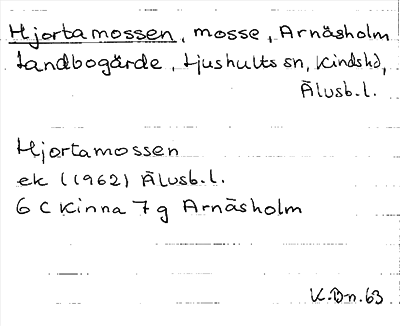 Hjortamossen, mosse, Arnäsholm
Landbogärde, Ljushults sn, Kindshd,
Älvsb.l.
Hjortamossen
ek (1962) Älvsb.l.
6 C Kinna 7 g Arnäsholm
K.Bn.63